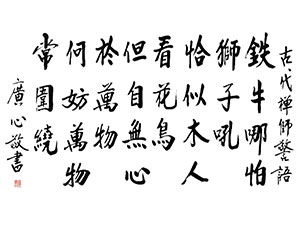 古代禅師警語
鐵牛哪怕
獅子吼
恰似木人
看花鳥
但自無心
於萬物
何妨萬物
常圍繞
廣心敬書